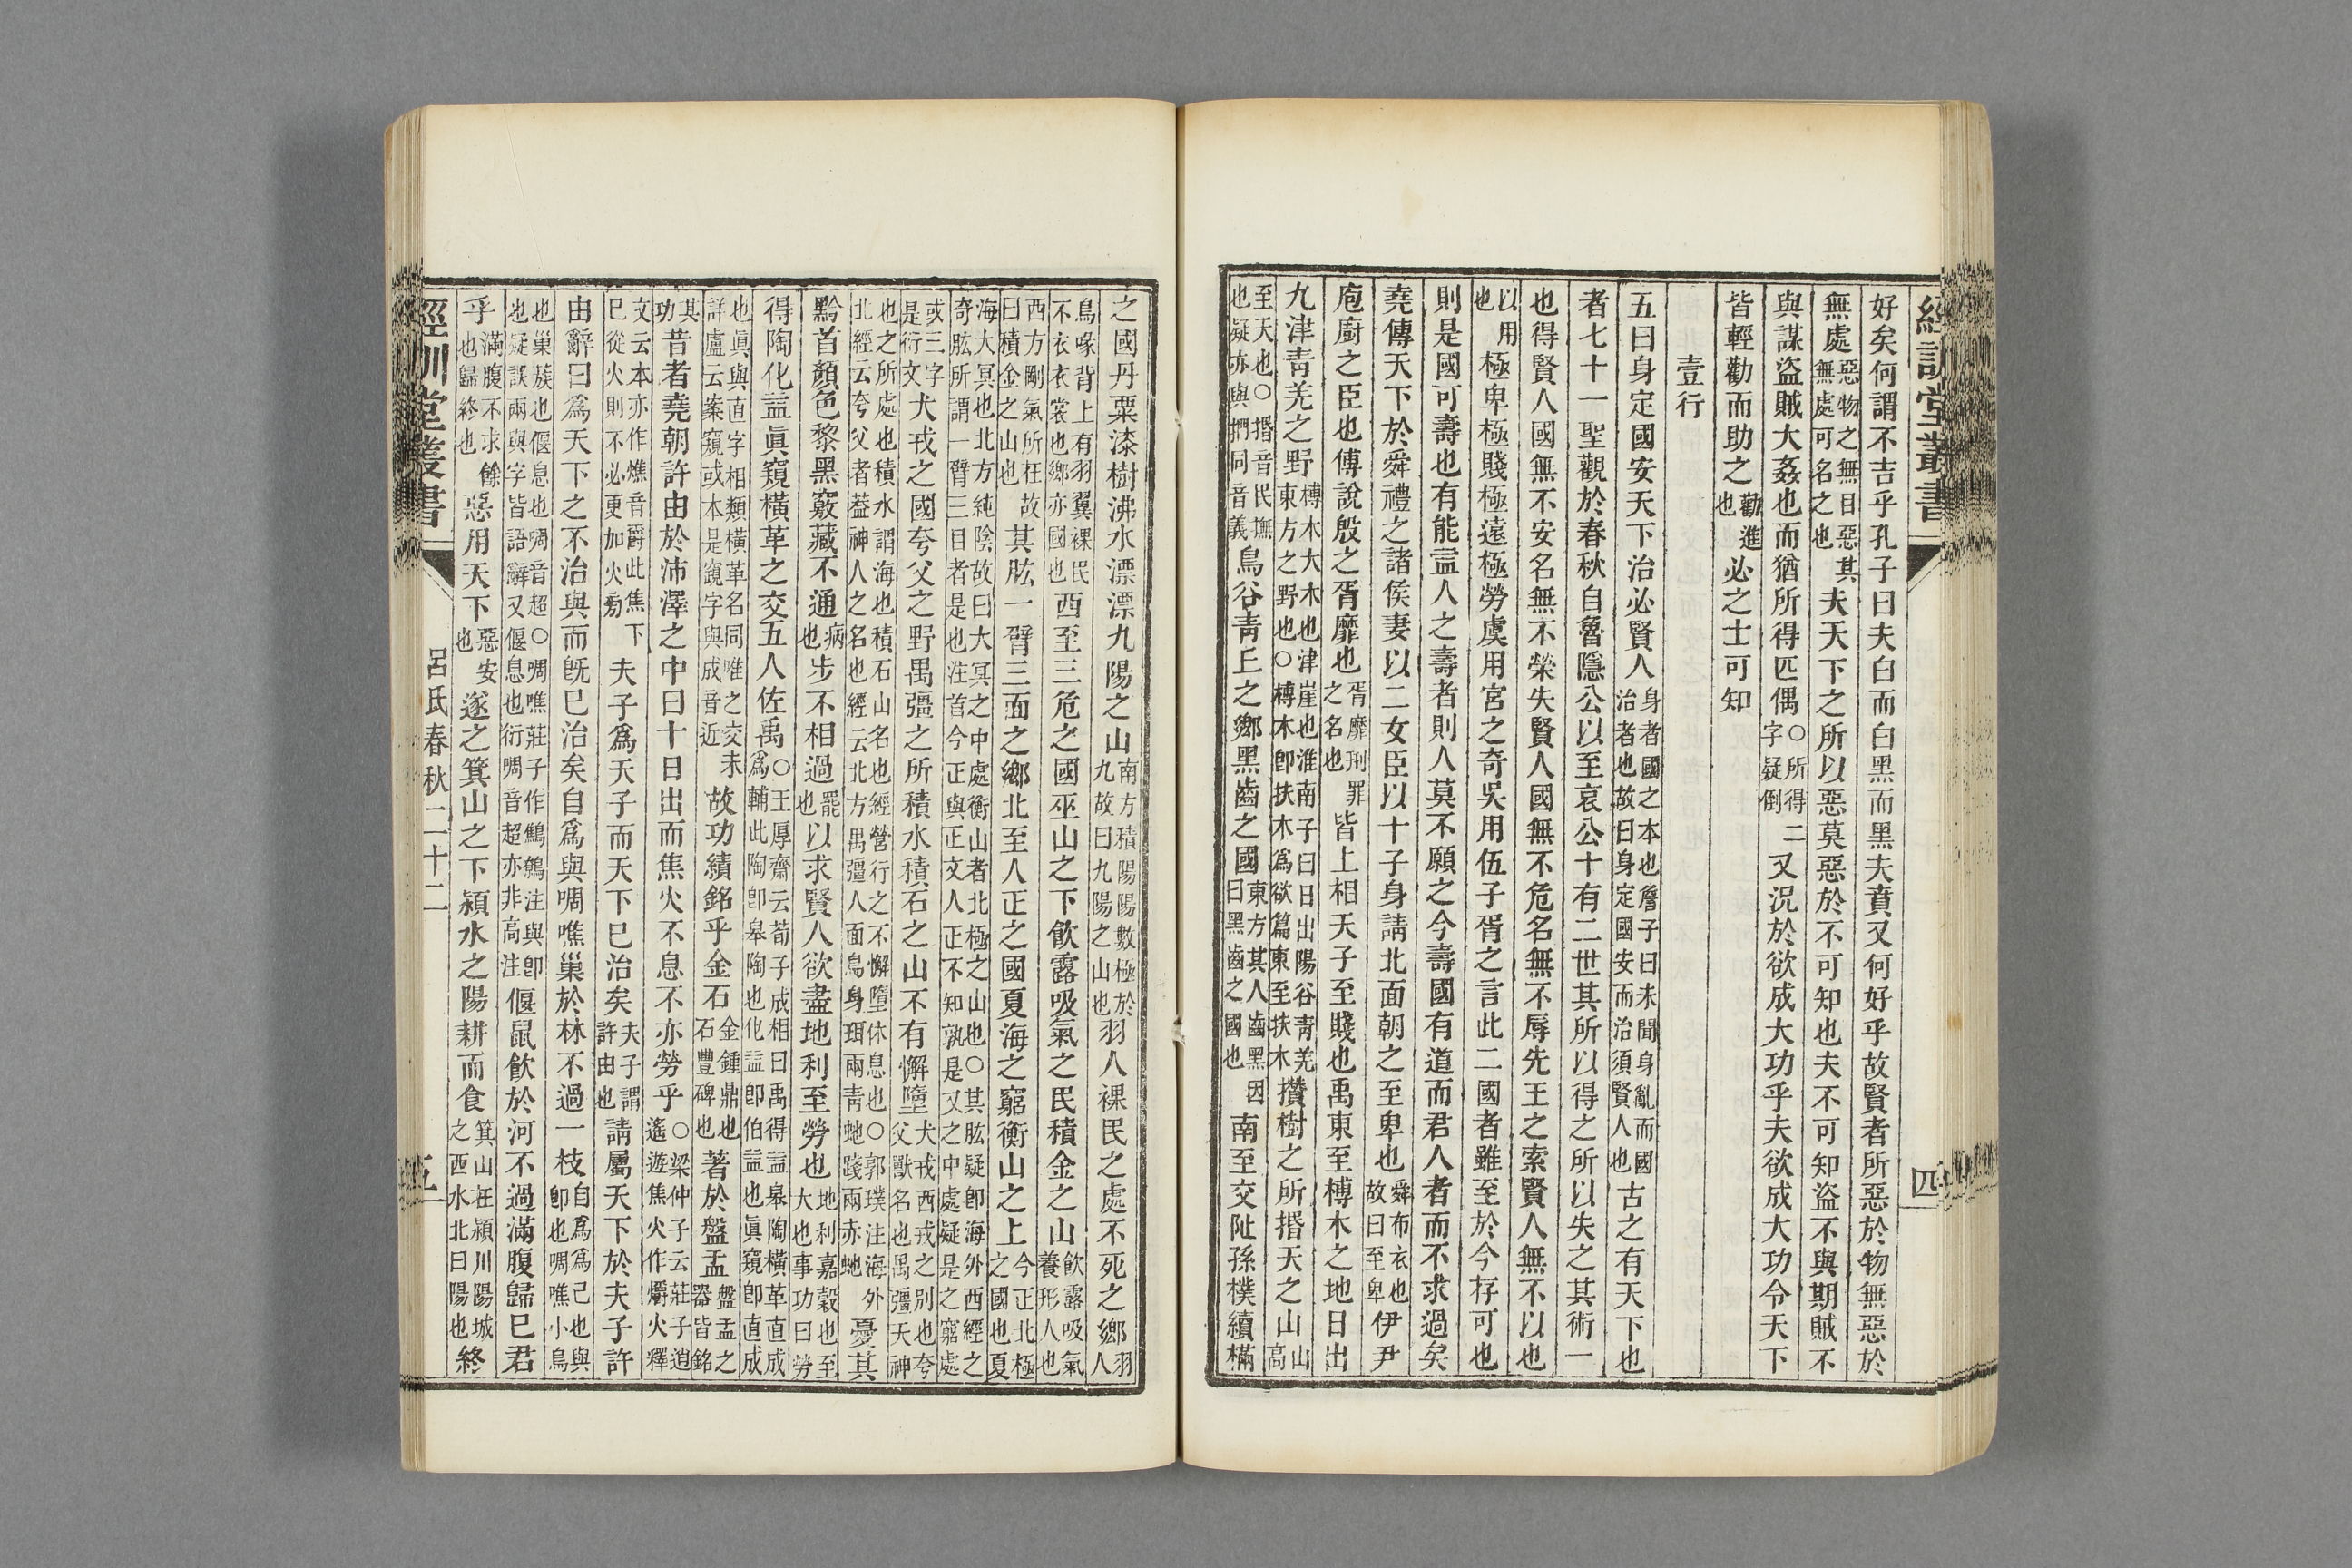 經訓堂叢書　四
好矣何謂不吉乎孔子曰夫白而白黑而黑夫賁又何好乎故賢者所惡於物無惡於
無處惡物之無目惡其無處可名之也夫天下之所以惡莫惡於不可知也夫不可知盜不與期賊不
與謀盜賊大姦也而猶所得匹偶○所得二字疑倒又況於欲成大功乎夫欲成大功令天下
皆輕勸而助之勸進也必之士可知
壹行
五曰身定國安天下治必賢人身者國之本也詹子曰未聞身亂而國治者也故曰身定國安而治須賢人也古之有天下也
者七十一聖觀於春秋自魯隱公以至哀公十有二世其所以得之所以失之其術一
也得賢人國無不安名無不榮失賢人國無不危名無不辱先王之索賢人無不以也
以用也極卑極賤極遠極勞虞用宮之奇吳用伍子胥之言此二國者雖至於今存可也
則是國可壽也有能益人之壽者則人莫不願之今壽國有道而君人者而不求過矣
堯傳天下於舜禮之諸侯妻以二女臣以十子身請北面朝之至卑也舜布衣也故曰至卑伊尹
庖廚之臣也傅說殷之胥靡也胥靡刑罪之名也皆上相天子至賤也禹東至榑木之地日出
九津青羌之野榑木大木也津崖也淮南子曰日出陽谷青羌東方之野也○榑木卽扶木爲欲篇東至扶木攢樹之所㨉天之山山高
至天也○㨉音民撫也疑亦與捫同音義鳥谷青丘之鄉黑齒之國東方其人齒黑因曰黑齒之國也南至交阯孫樸續樠
之國丹粟漆樹沸水漂漂九陽之山南方積陽陽數極於九故曰九陽之山也羽人裸民之處不死之鄉羽人
鳥喙背上有羽翼裸民不衣衣裳也鄉亦國也西至三危之國巫山之下飮露吸氣之民積金之山飮露吸氣養形人也
西方剛氣所在故曰積金之山也其肱一臂三面之鄉北至人正之國夏海之窮衡山之上今正北極之國也夏
海大冥也北方純陰故曰大冥之中處衡山者北極之山也○其肱疑卽海外西經之奇肱所謂一臂三目者是也注首今正與正文人正不知孰是又之中處疑是之窮處
或三字是衍文犬戎之國夸父之野禺彊之所積水積石之山不有懈墮犬戎西戎之別也夸父獸名也禺彊天神
也之所處也積水謂海也積石山名也經營行之不懈墮休息也○郭璞注海外北經云夸父者葢神人之名也經云北方禺彊人面鳥身珥兩青虵踐兩赤虵憂其
黔首顏色黎黑竅藏不通病也步不相過罷也以求賢人欲盡地利至勞也地利嘉穀也至大也事功曰勞
得陶化益眞窺橫革之交五人佐禹○王厚齋云荀子成相曰禹得益皋陶橫革直成爲輔此陶卽皋陶也化益卽伯益也眞窺卽直成
也眞與直字相類橫革名同唯之交未詳盧云案窺或本是窺字與成音近故功績銘乎金石金鍾鼎也石豐碑也著於盤盂盤盂之器皆銘
其功昔者堯朝許由於沛澤之中曰十日出而焦火不息不亦勞乎○梁仲子云莊子逍遙遊焦火作爝火釋
文云本亦作燋音爵此焦下巳從火則不必更加火旁夫子爲天子而天下巳治矣夫子謂許由也請屬天下於夫子許
由辭曰爲天下之不治與而旣巳治矣自爲與啁噍巢於林不過一枝自爲爲己也與卽也啁噍小鳥
也巢蔟也偃息也啁音超○啁噍莊子作鷦鷯注與卽也疑誤兩與字皆語辭又偃息也衍啁音超亦非高注偃鼠飮於河不過滿腹歸巳君
乎滿腹不求餘也歸終也惡用天下惡安也遂之箕山之下潁水之陽耕而食箕山在潁川陽城之西水北曰陽也終
經訓堂叢書　呂氏春秋二十二　五